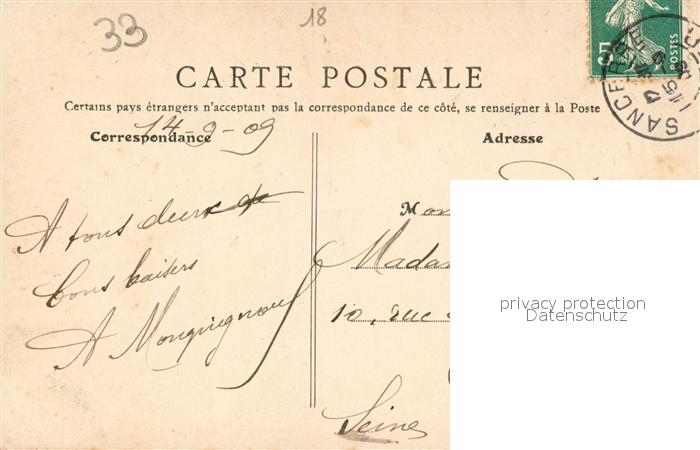 33
18
5
POSTES
SANCERRE
CARTE POSTALE
Certains pays étrangers n'acceptant pas la correspondance de ce côté, se renseigner à la Poste
Correspondance
14-9-09
Adresse
A tous deux
bons baisers
A Mouquignon
M
Madam
10, rue
Seine
privacy protection
Datenschutz